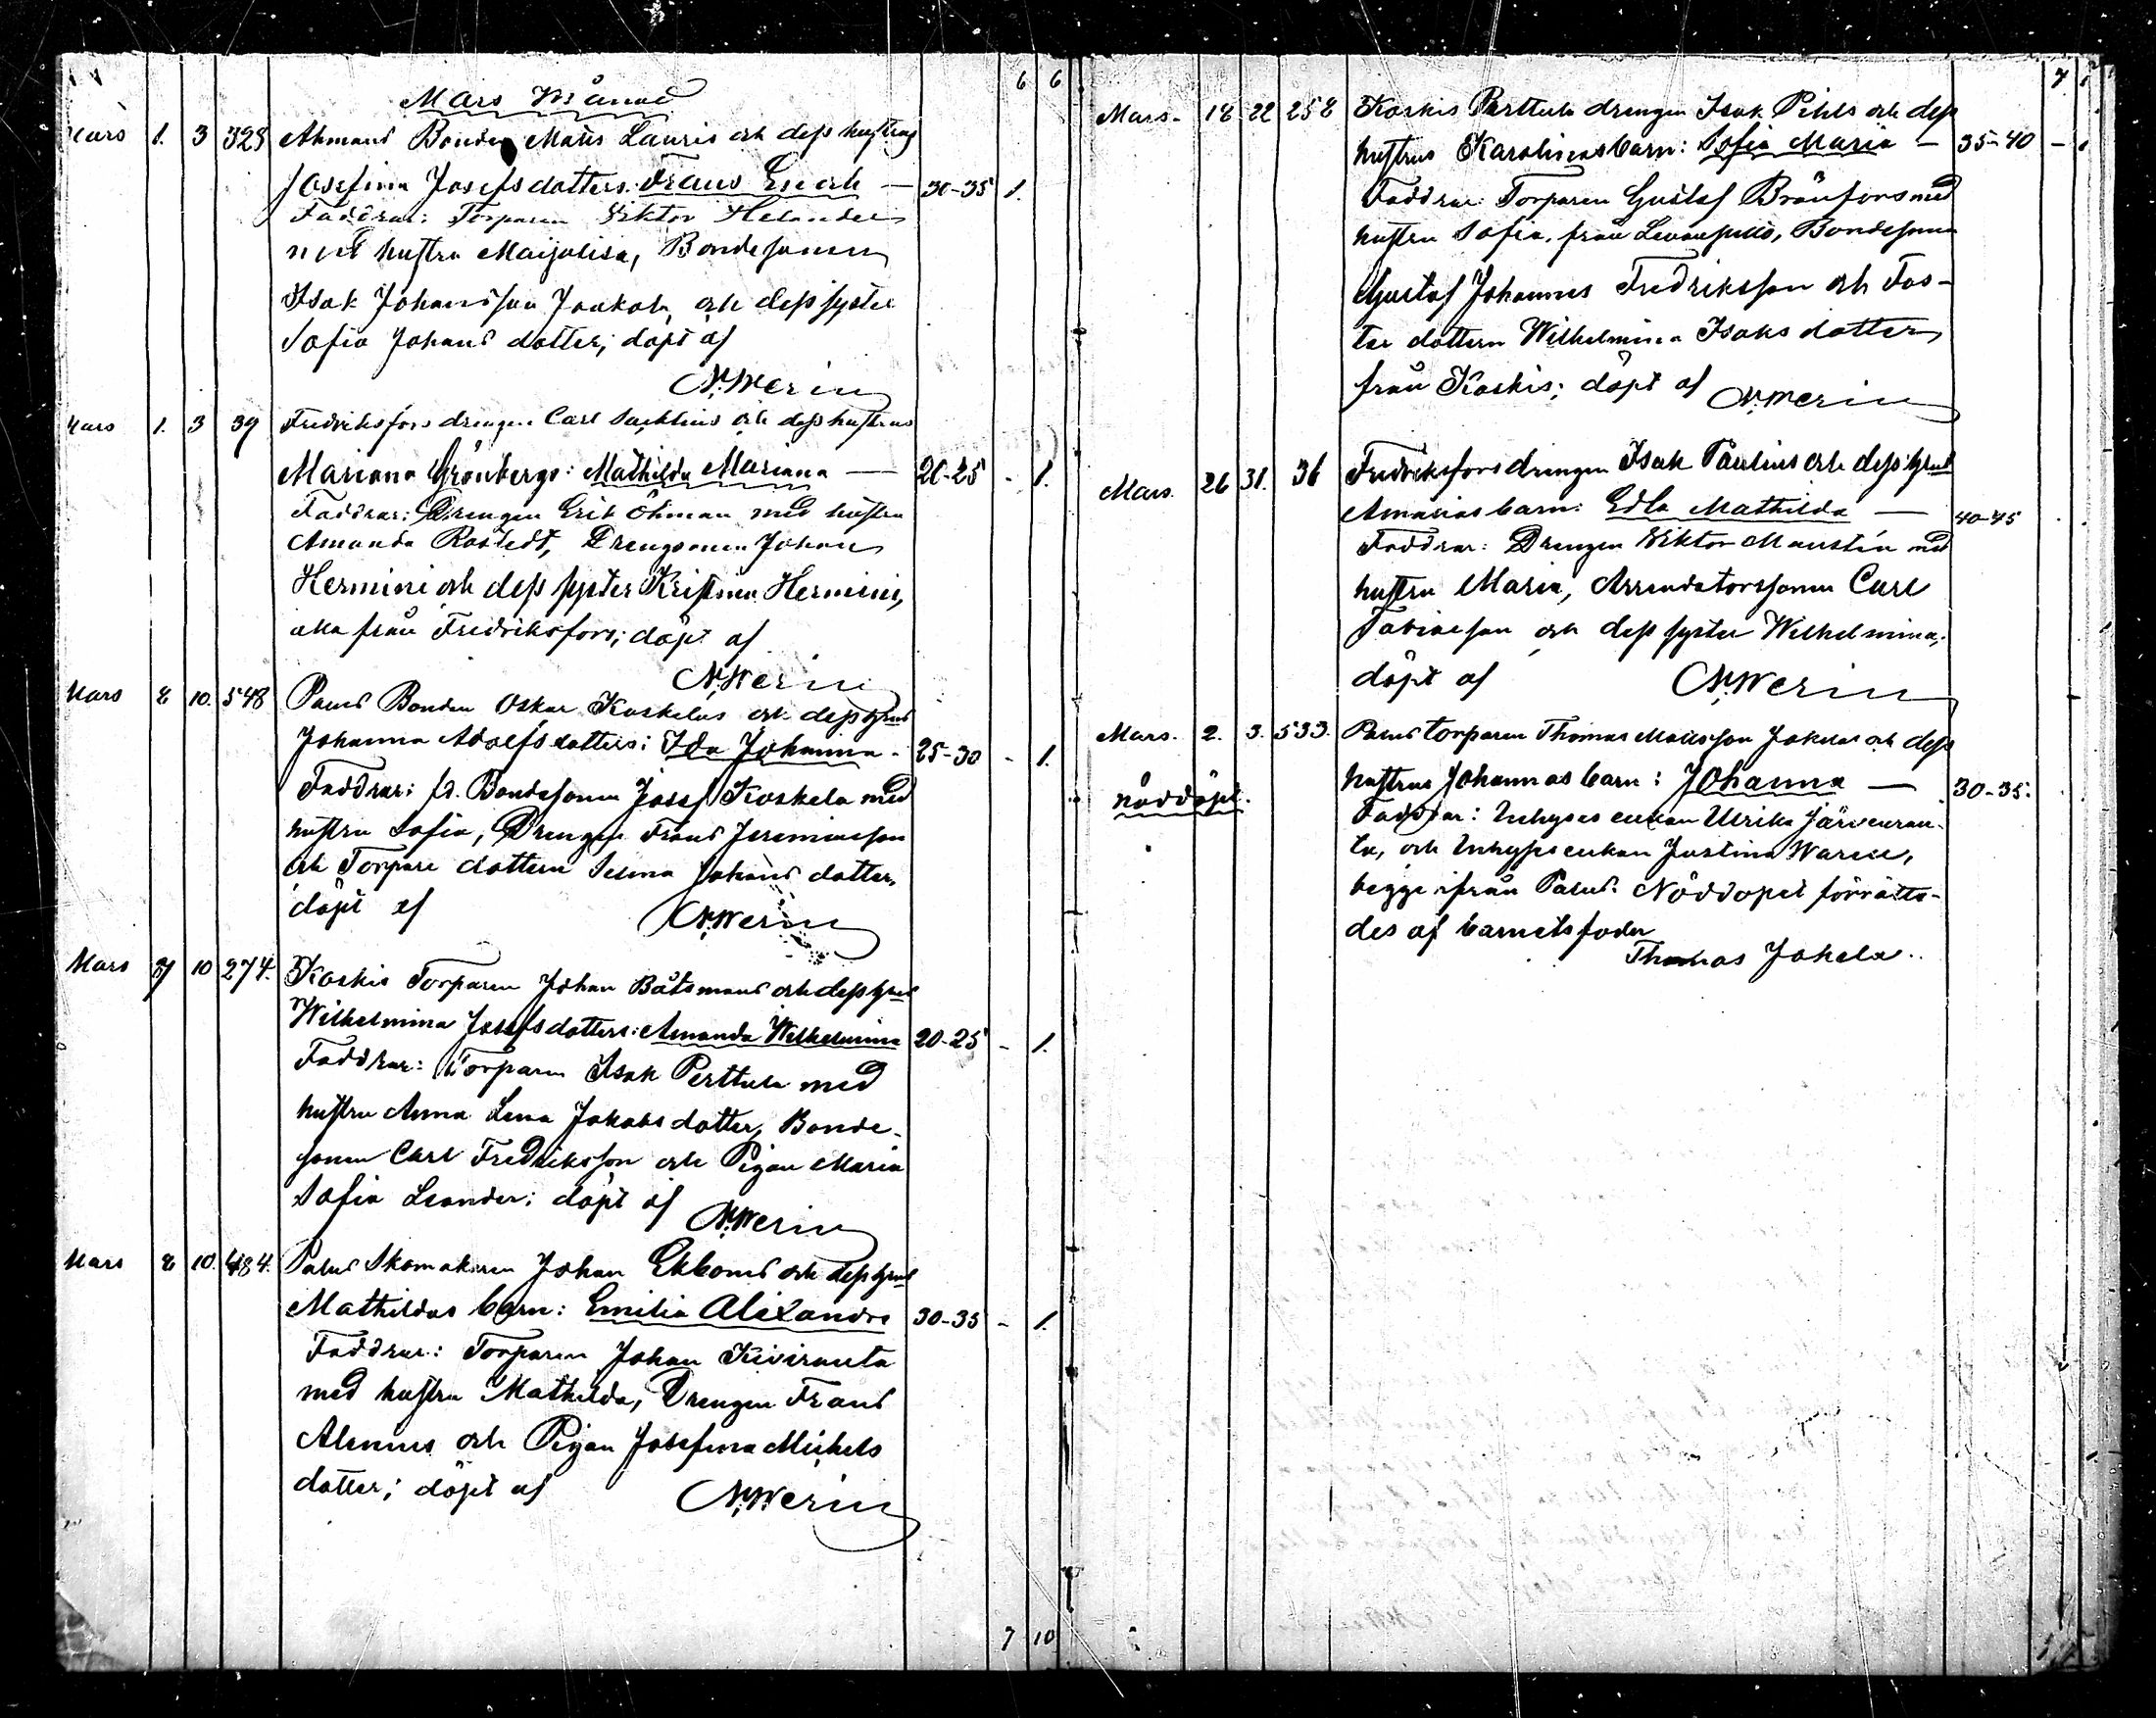 6 6
Mars Månad
Mars 1. 3 328 Ahmans Bonden Matts Lauris och dess hustrus
Josefina Josefsdotters: Frans Enoch — 30-35 1.
Faddrar: Torparen Viktor Helander
med hustru Maijalisa, Bondesonen
Isak Johansson Jaakola och dess syster
Sofia Johans dotter; döpt af
N. Werin
Mars 1. 3 39 Fredriksfors drengen Carl Sacklins och dess hustrus
Mariana Grönbergs: Mathilda Mariana — 20-25 - 1.
Faddrar: Drengen Erik Öhman med hustru
Amanda Rostedt, Drengsonen Johan
Hermini och dess syster Kristina Hermini,
alla från Fredriksfors; döpt af
N. Werin
Mars 8 10. 548 Palus Bonden Oskar Koskelas och dess hrus
Johanna Adolfsdotters: Ida Johanna - 25-30 - 1.
Faddrar: fd. Bondesonen Josef Koskela med
hustru Sofia, Drengen Frans Jeremiasson
och Torpare dottern Selma Johans dotter,
döpt af N. Werin
Mars 7 10 274. Koskis Torparen Johan Båtsmans och dess hrus
Wilhelmina Josefsdotters: Amanda Wilhelmina 20-25 - 1.
Faddrar: Torparen Isak Perttula med
hustru Anna Lena Jakobs dotter, Bonde-
sonen Carl Fredriksson och Pigan Maria
Sofia Leander; döpt af N. Werin
Mars 8 10. 484. Palus Skomakaren Johan Ekboms och dess hrus
Mathildas barn: Emilia Alexandra 30-35 - 1.
Faddrar: Torparen Johan Kiviranta
med hustru Mathilda, Drengen Frans
Alenius och Pigan Josefina Michels
dotter; döpt af N. Werin
7 10
7
Mars. 18 22 258 Koskis Perttula drengen Isak Pihls och dess
hustrus Karolinas barn: Sofia Maria — 35-40 -
Faddrar: Torparen Gustaf Brånfors med
hustru Sofia, från Levanpelto, Bondesonen
Gustaf Johannes Fredriksson och Fos-
ter dottern Wilhelmina Isaks dotter
från Koskis; döpt af N. Werin
Mars. 26 31. 36 Fredriksfors drengen Isak Paulins och dess hrus
Amandas barn: Edla Mathilda — 40-45
Faddrar: Drengen Viktor Maustin med
hustru Maria, Arrendatorssonen Carl
Tobiasson och dess syster Wilhelmina,
döpt af N. Werin
Mars. 2. 3. 533. Palus torparen Thomas Mattsson Jokelas och dess
hustrus Johannas barn: Johanna — 30-35.
nöddöpt.
Faddrar: Inhyses enkan Ulrika Järvenran-
ta, och Inhyses enkan Justina Warell,
begge ifrån Palus. Nöddopet förrätta-
des af barnets fader
Thomas Jokela.